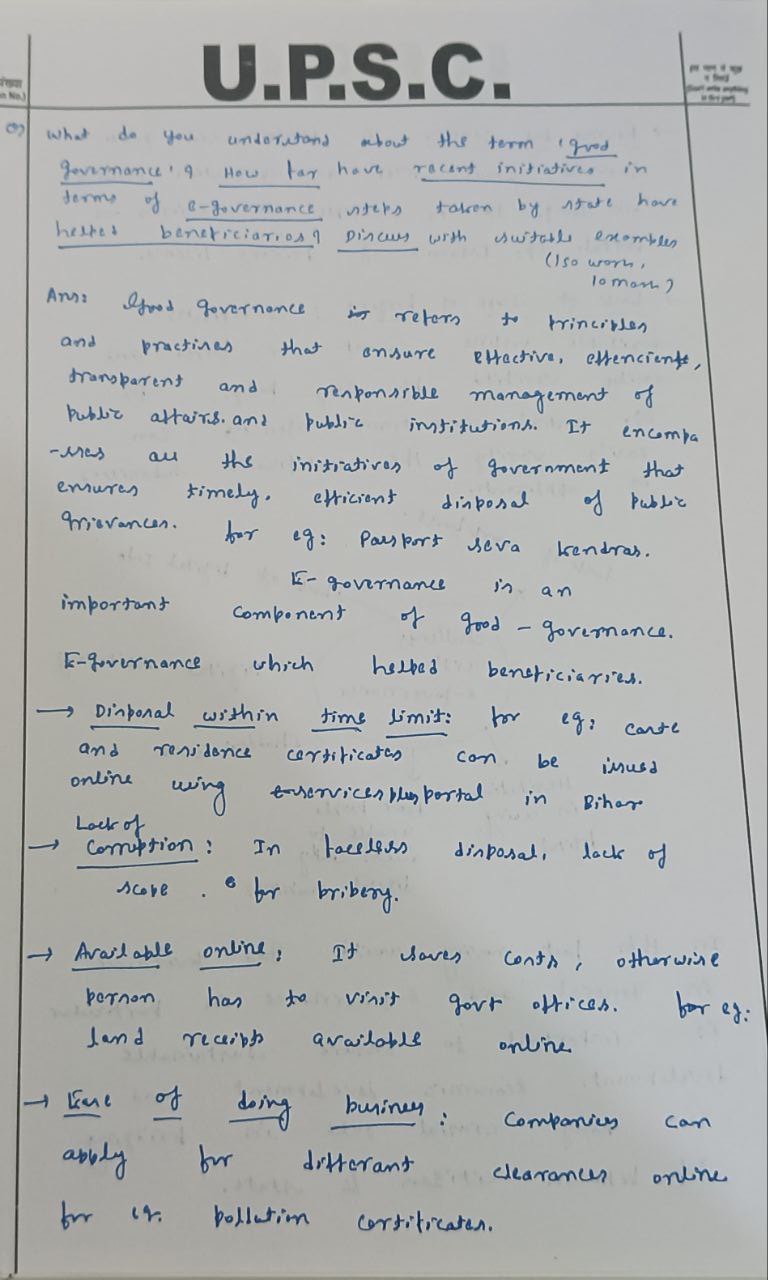 U.P.S.C.
What do you understand about the term 'good
governance'? How far have recent initiatives in
terms of e-governance steps taken by state have
helped beneficiaries? Discuss with suitable examples
(150 word,
10 mark)
Ans: Good governance refers to principles
and practises that ensure effective, effenciente,
transparent and responsible management of
public affairs. and public institutions. It encompa
-sses all the initiatives of government that
ensures timely, efficient disposal of public
grievances. for eg: Passport seva kendras.
E-governance is an
important component of good-governance.
E-governance which helped beneficiaries.
→ Disposal within time limit: for eg: caste
and residence certificates can be issued
online using e-services plus portal in Bihar
Lack of
→ Corruption: In faceless disposal, lack of
scope . for bribery.
→ Available online: It saves costs, otherwise
person has to visit govt offices. for eg:
land receipts available online
→ Ease of doing business: Companies can
apply for differant clearances online
for eg. pollution certificates.